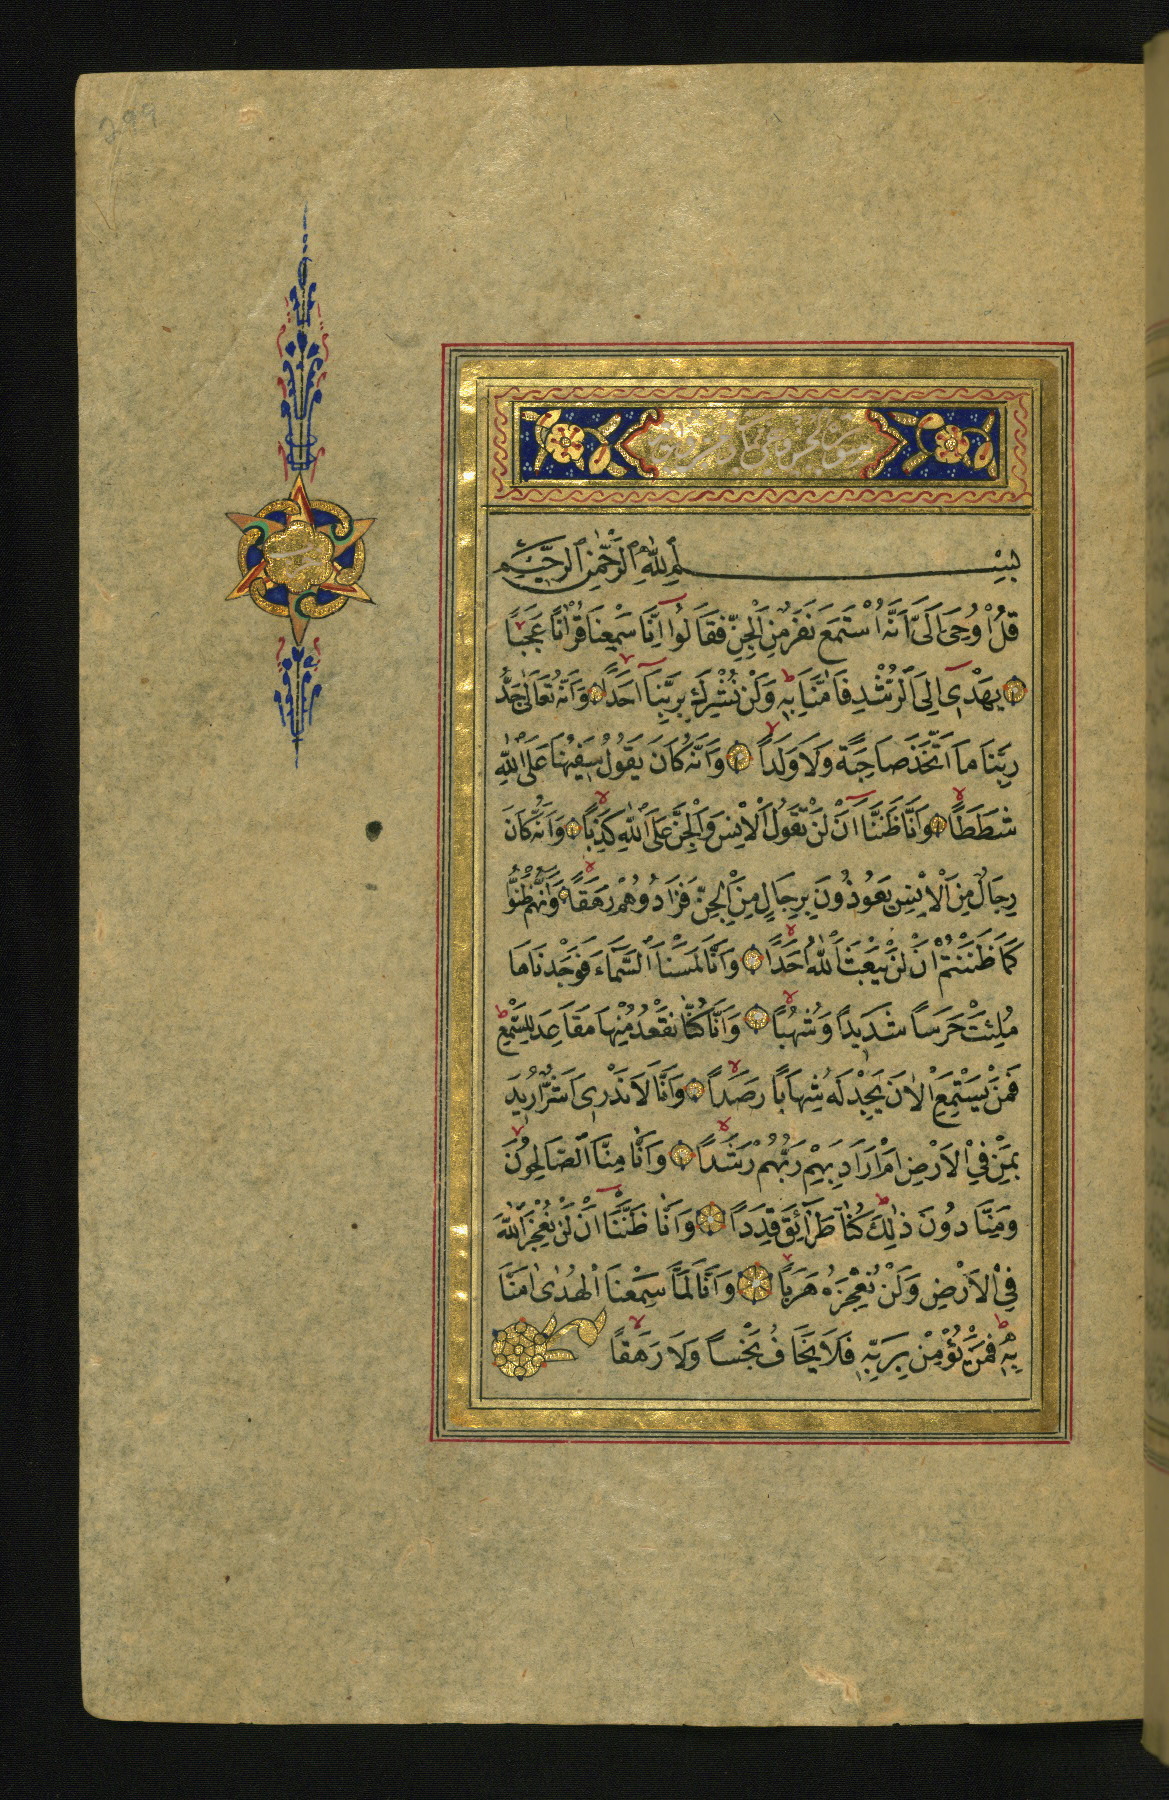 299
سورة الجن وهى ثمان وعشرون آية
حزب
بِسْمِ ٱللّٰهِ ٱلرَّحْمٰنِ ٱلرَّحِيمِ
قُلْ اُوحِىَ اِلَىَّ اَنَّهُ ٱسْتَمَعَ نَفَرٌ مِنَ ٱلْجِنِّ فَقَالُوٓا اِنَّا سَمِعْنَا قُرْاٰنًا عَجَبًا
يَهْدِىٓ اِلَى ٱلرُّشْدِ فَاٰمَنَّا بِهٖ وَلَنْ نُشْرِكَ بِرَبِّنَآ اَحَدًا وَاَنَّهُ تَعَالٰى جَدُّ
رَبِّنَا مَا ٱتَّخَذَ صَاحِبَةً وَلَا وَلَدًا وَاَنَّهُ كَانَ يَقُولُ سَفِيهُنَا عَلَى ٱللّٰهِ
شَطَطًا وَاَنَّا ظَنَنَّآ اَنْ لَنْ تَقُولَ ٱلْاِنْسُ وَٱلْجِنُّ عَلَى ٱللّٰهِ كَذِبًا وَاَنَّهُ كَانَ
رِجَالٌ مِنَ ٱلْاِنْسِ يَعُوذُونَ بِرِجَالٍ مِنَ ٱلْجِنِّ فَزَادُوهُمْ رَهَقًا وَاَنَّهُمْ ظَنُّوا
كَمَا ظَنَنْتُمْ اَنْ لَنْ يَبْعَثَ ٱللّٰهُ اَحَدًا وَاَنَّا لَمَسْنَا ٱلسَّمَآءَ فَوَجَدْنَاهَا
مُلِئَتْ حَرَسًا شَدِيدًا وَشُهُبًا وَاَنَّا كُنَّا نَقْعُدُ مِنْهَا مَقَاعِدَ لِلسَّمْعِ
فَمَنْ يَسْتَمِعِ ٱلْاٰنَ يَجِدْ لَهُ شِهَابًا رَصَدًا وَاَنَّا لَا نَدْرِىٓ اَشَرٌّ اُرِيدَ
بِمَنْ فِي ٱلْاَرْضِ اَمْ اَرَادَ بِهِمْ رَبُّهُمْ رَشَدًا وَاَنَّا مِنَّا ٱلصَّالِحُونَ
وَمِنَّا دُونَ ذٰلِكَ كُنَّا طَرَآئِقَ قِدَدًا وَاَنَّا ظَنَنَّآ اَنْ لَنْ نُعْجِزَ ٱللّٰهَ
فِي ٱلْاَرْضِ وَلَنْ نُعْجِزَهُ هَرَبًا وَاَنَّا لَمَّا سَمِعْنَا ٱلْهُدٰىٓ اٰمَنَّا
بِهٖ فَمَنْ يُؤْمِنْ بِرَبِّهٖ فَلَا يَخَافُ بَخْسًا وَلَا رَهَقًا